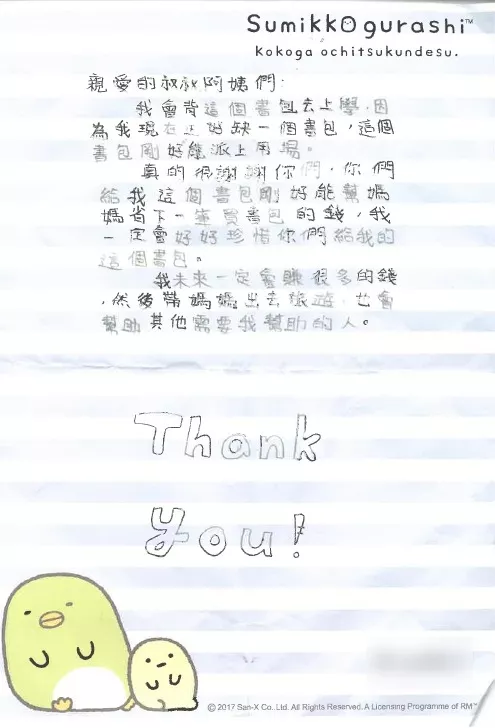 Sumikkogurashi™
Kokoga ochitsukundesu.
親愛的叔叔阿姨們:
我會背這個書包去上學,因
為我現在正好缺一個書包,這個
書包剛好能派上用場。
真的很謝謝你們,你們
給我這個書包剛好能幫媽
媽省下一筆買書包的錢,我
一定會好好珍惜你們給我的
這個書包。
我未來一定會賺很多的錢
,然後帶媽媽出去旅遊,也會
幫助其他需要我幫助的人。
Thank
You!
© 2017 San-X Co., Ltd. All Rights Reserved. A Licensing Programme of RM™